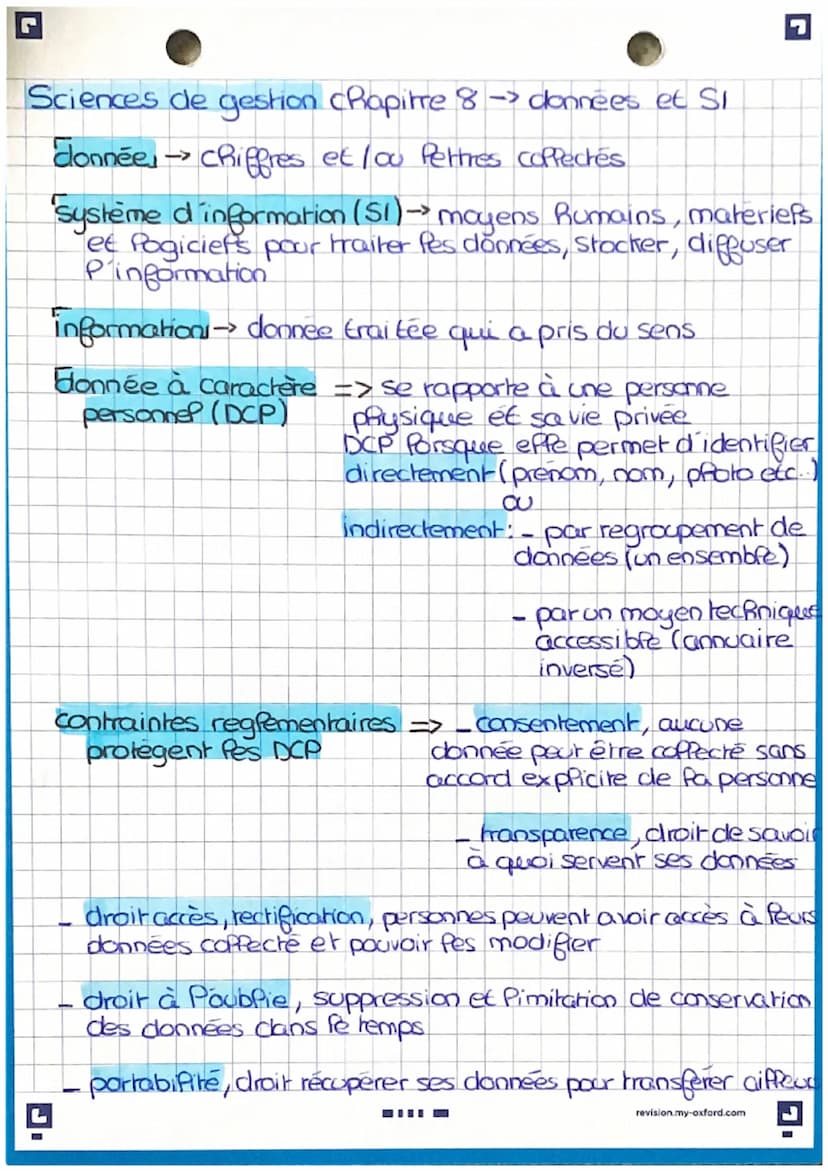 Sciences de gestion chapitre 8 -> données et SI
donnée -> chiffres et/ou lettres collectés
système d'information (SI) -> moyens humains, matériels
et logiciels pour traiter les données, stocker, diffuser
l'information
information -> donnée traitée qui a pris du sens
donnée à caractère => se rapporte à une personne
personnel (DCP) physique et sa vie privée
DCP lorsque elle permet d'identifier
directement (prénom, nom, photo etc..)
ou
indirectement : - par regroupement de
données (un ensemble)
- par un moyen technique
accessible (annuaire
inversé)
contraintes reglementaires => - consentement, aucune
protègent les DCP donnée peut être collecté sans
accord explicite de la personne
- transparence, droit de savoir
à quoi servent ses données
- droit accès, rectification, personnes peuvent avoir accès à leurs
données collecté et pouvoir les modifier
- droit à l'oublie, suppression et limitation de conservation
des données dans le temps
- portabilité, droit récupérer ses données pour transférer ailleurs
revision.my-oxford.com